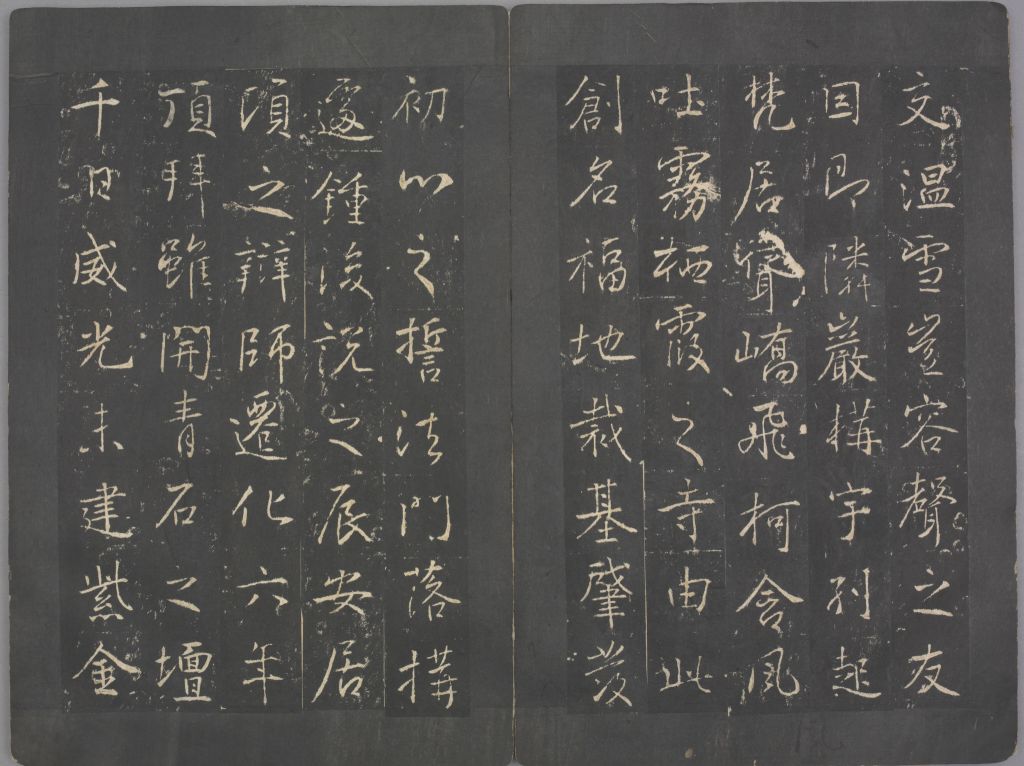 文温雪豈容聲之友
因即隣巖構宇列起
梵居聳嶠飛柯含風
吐霧栖霞之寺由此
創名福地裁基肇發
初心之誓法門落構
遽鍾後説之辰安居
頃之辯師遷化六年
頂拜雖開青石之壇
千日威光未建紫金